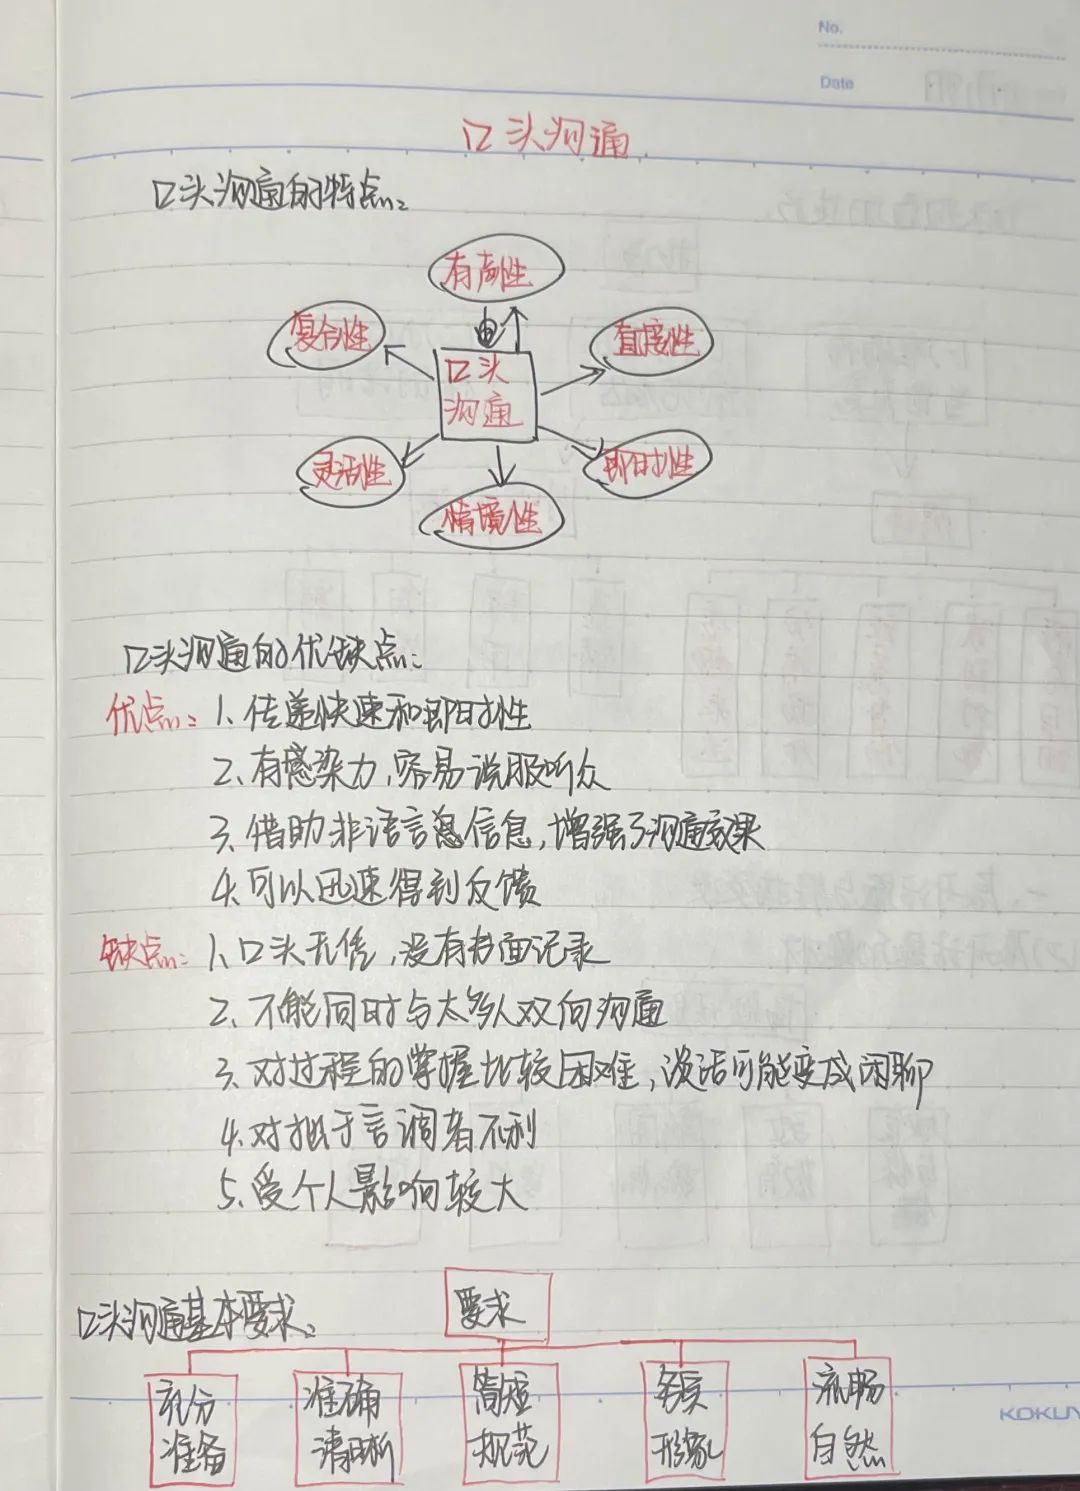 No.
Date
口头沟通
口头沟通的特点：
有声性
复合性
直接性
口头
沟通
灵活性
即时性
情境性
口头沟通的优缺点：
优点：1、传递快速和即时性
2、有感染力，容易说服听众
3、借助非语言信息，增强了沟通效果
4、可以迅速得到反馈
缺点：1、口头无凭，没有书面记录
2、不能同时与太多人双向沟通
3、对过程的掌握比较困难，谈话可能变成闲聊
4、对拙于言调者不利
5、受个人影响较大
口头沟通基本要求：
要求
充分
准备
准确
清晰
简短
规范
形象
流畅
自然
KOKUY